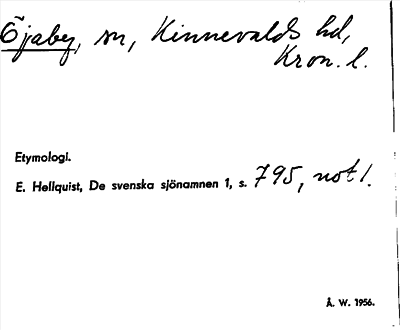 Öjaby, sn, Kinnevalds hd,
Kron. l.
Etymologi.
E. Hellquist, De svenska sjönamnen 1, s. 795, not 1.
Å. W. 1956.